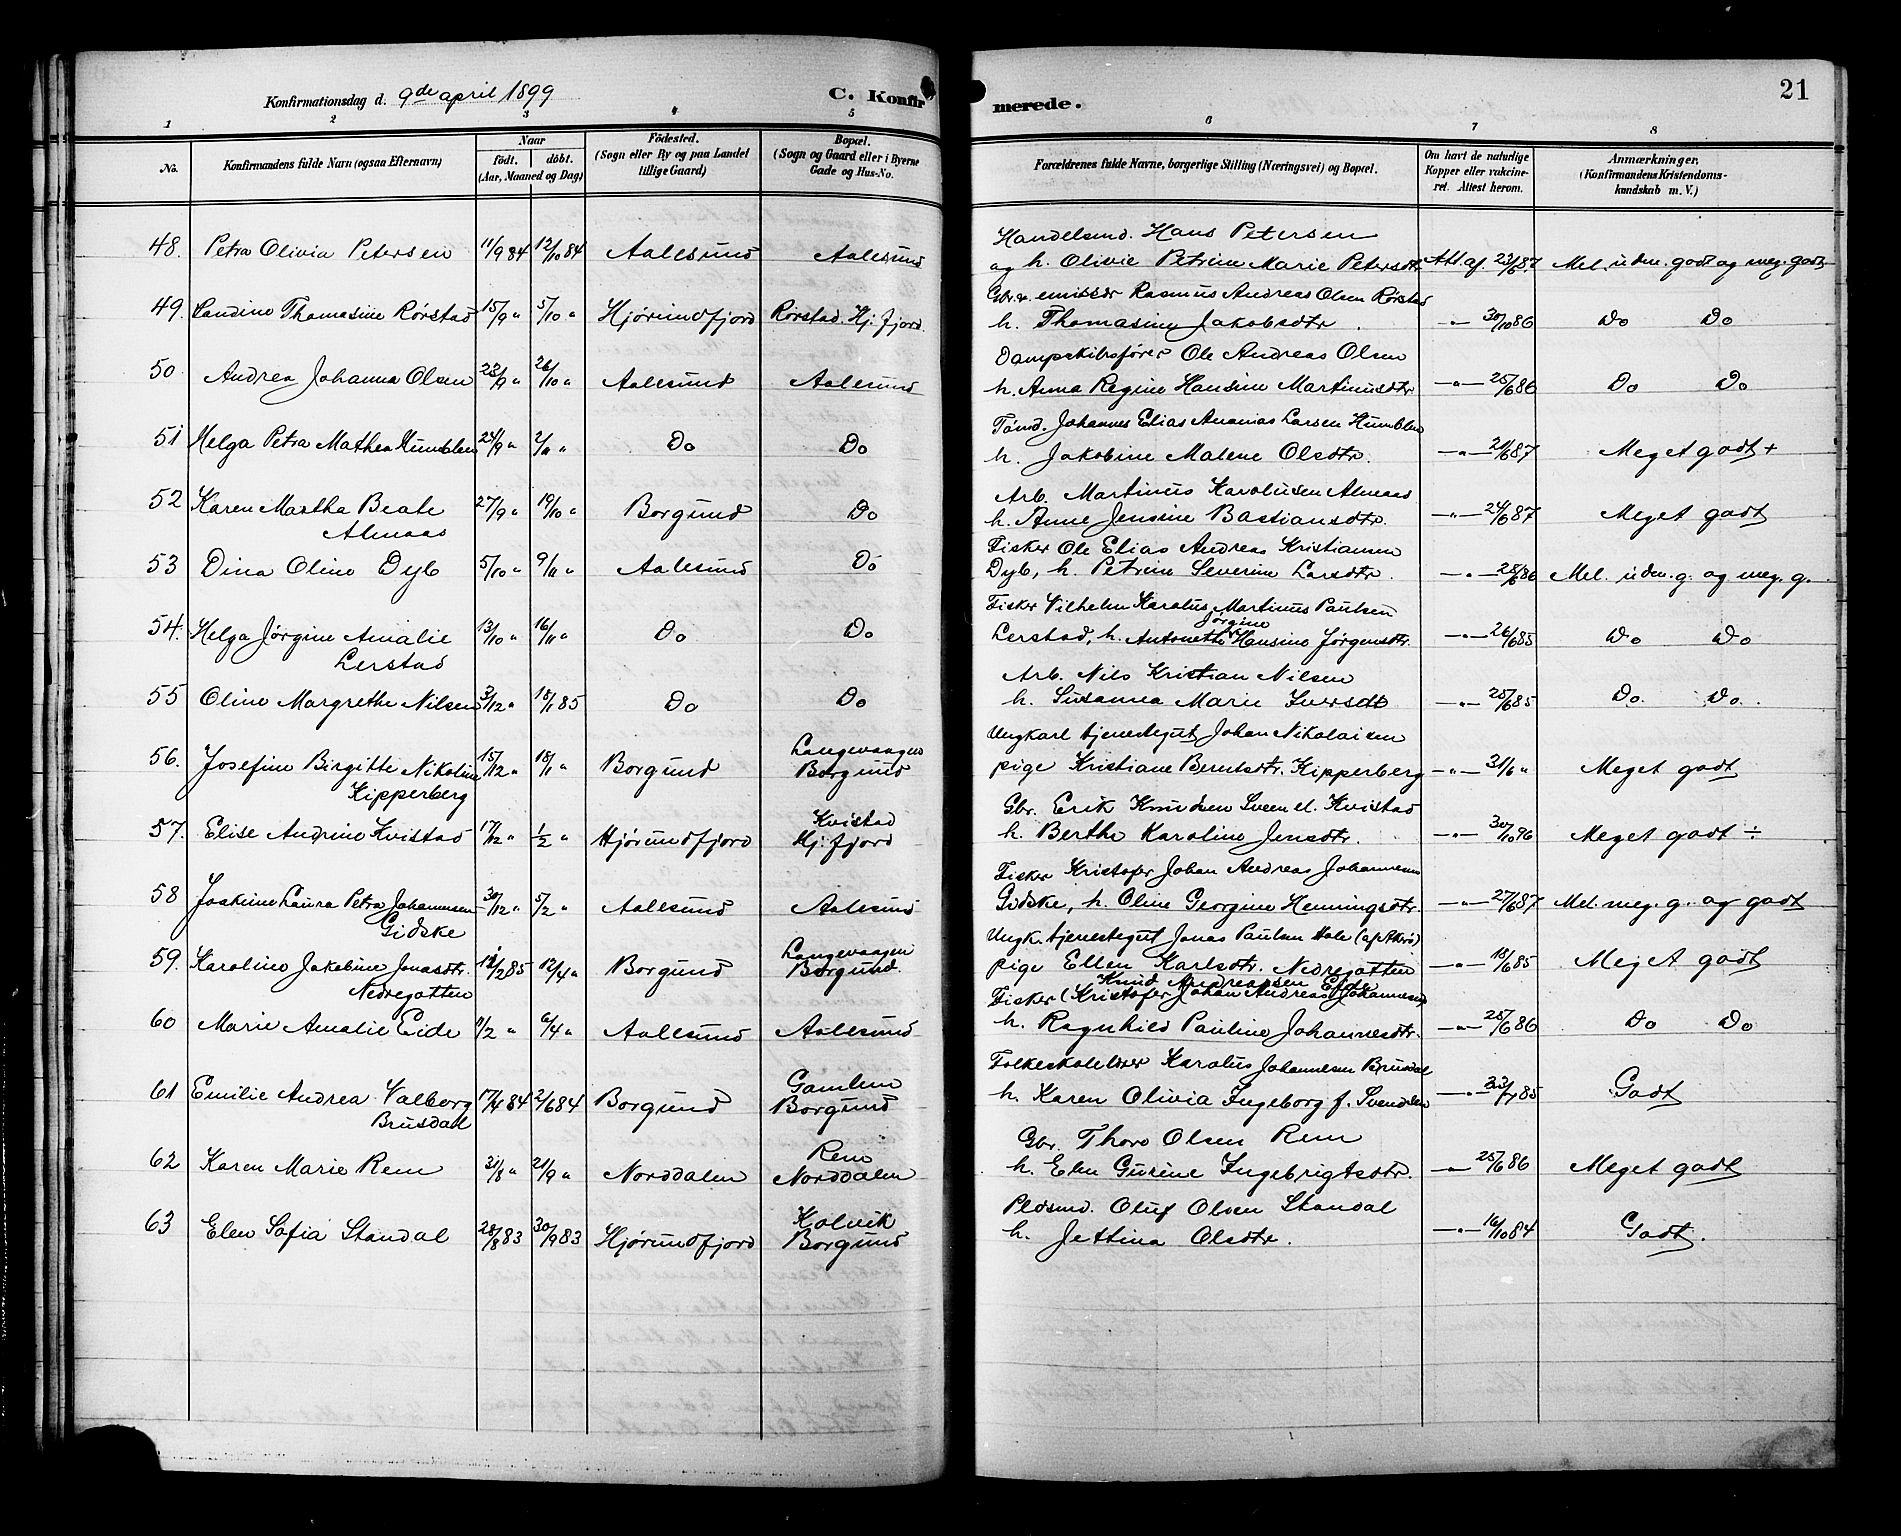 Konfirmationsdag d. 9de april 1899
C. Konfir
merede.
21
1 2 3 4 5 6 7 8
No.
Konfirmandens fulde Navn (ogsaa Efternavn)
Naar
født. døbt.
(Aar, Maaned og Dag)
Fødested.
(Sogn eller By og paa Landet
tillige Gaard)
Bopæl.
(Sogn og Gaard eller i Byerne
Gade og Hus-No.
Forældrenes fulde Navne, borgerlige Stilling (Næringsvei) og Bopæl.
Om havt de naturlige
Kopper eller vakcine-
ret. Attest herom.
Anmærkninger,
(Konfirmandens Kristendoms-
kundskab m. V.)
48. Petra Olivia Petersen 11/9 84 12/10 84 Aalesund Aalesund
Handelsmd. Hans Petersen
og h. Olivie Petrine Marie Petersdtr. Att. af 23/6 87 Mel. uden. godt og meg. godt
49. Thomasine Rørstad 15/9 " 5/10 " Hjørundfjord Rørstad. Hj. fjord.
Gbr. & emissær Rasmus Andreas Olsen Rørstad
h. Thomasine Jakobsdtr. -"- 30/10 86 Do Do
50 Andrea Johanna Olsen 23/9 " 26/10 " Aalesund Aalesund
Dampskibsfører Ole Andreas Olsen
h. Anna Regine Hansine Martinusdtr. -"- 25/6 86 Do Do
51 Helga Petra Mathea Humblen 24/9 " 2/11 " Do Do
Tømd. Johannes Elias Ananias Larsen Humblen
h. Jakobine Malene Olsdtr. -"- 21/6 87 Meget godt +
52 Karen Martha Beate
Almaas 27/9 " 19/10 " Borgund Do
Arb. Martinus Karolusen Almaas
h. Anne Jensine Bastiansdtr. -"- 24/6 87 Meget godt
53 Dina Oline Dyb 5/10 " 9/11 " Aalesund Do
Fisker Ole Elias Andreas Kristiansen
Dyb, h. Petrine Severine Larsdtr. -"- 28/6 86 Mel. uden. g. og meg. g.
54. Helga Jørgine Amalie
Lerstad 13/10 " 16/11 " Do Do
Fisker Vilhelm Karolus Martinus Paulsen
Jørgine
Lerstad, h. Antonette Hansine Jørgensdtr. -"- 26/6 85 Do Do
55 Oline Margrethe Nilsen 3/12 " 18/1 85 Do Do
Arb. Nils Kristian Nilsen
h. Susanna Marie Iversdtr -"- 25/6 85 Do. Do.
56. Josefine Birgitte Nikoline
Kipperberg 15/12 " 18/1 " Borgund Langevaagen
Borgund
Ungkarl tjenestegut Johan Nikolaisen
pige Kristiane Berntsdtr. Kipperberg -"- 31/6 " Meget godt
57. Elise Andrine Kvistad 17/12 " 1/2 " Hjørundfjord Kvistad
Hj. fjord
Gbr. Erik Knudsen Sveen el. Kvistad
h. Berthe Karoline Jensdtr. -"- 30/10 96 Meget godt ÷
58 Joakime Laura Petra Johannessen
Gidske 30/12 " 5/2 " Aalesund Aalesund
Fisker Kristofer Johan Andreas Johannesen
Gidske, h. Oline Georgine Henningsdtr. -"- 27/6 87 Mel. meg. g. og godt
59. Karoline Jakobine Jonasdtr.
Nedregotten /2 85 12/4 " Borgund Langevaagen
Borgund
Ungk. tjenestegut Jonas Paulsen Hole (af Akrø)
pige Ellen Karlsdtr. Nedregotten -"- 18/6 85 Meget godt
60 Marie Amalie Eide 11/2 " 6/4 " Aalesund Aalesund
Knud Andreassen Eide
Fisker (Kristofer Johan Andreas Johannesen
h. Ragnhild Pauline Johannesdtr. -"- 25/6 86 Do Do
61 Emilie Andrea Valborg
Brusdal 17/4 84 2/6 84 Borgund Gamlem
Borgund
Folkeskolelærer Karolus Johannesen Brusdal
h. Karen Olivia Ingeborg f. Svendsen -"- 23/7 85 Godt
62 Karen Marie Rem 31/8 " 21/9 " Norddalen Rem
Norddalen
Gbr. Thore Olsen Rem
h. Elen Gurine Ingebrigtsdtr. -"- 25/6 86 Meget godt
63 Elen Sofia Standal 28/8 83 30/9 83 Hjørundfjord Kolvik
Borgund
Pladsmd. Oluf Olsen Standal
h. Jettina Olsdtr. -"- 16/10 84 Godt.